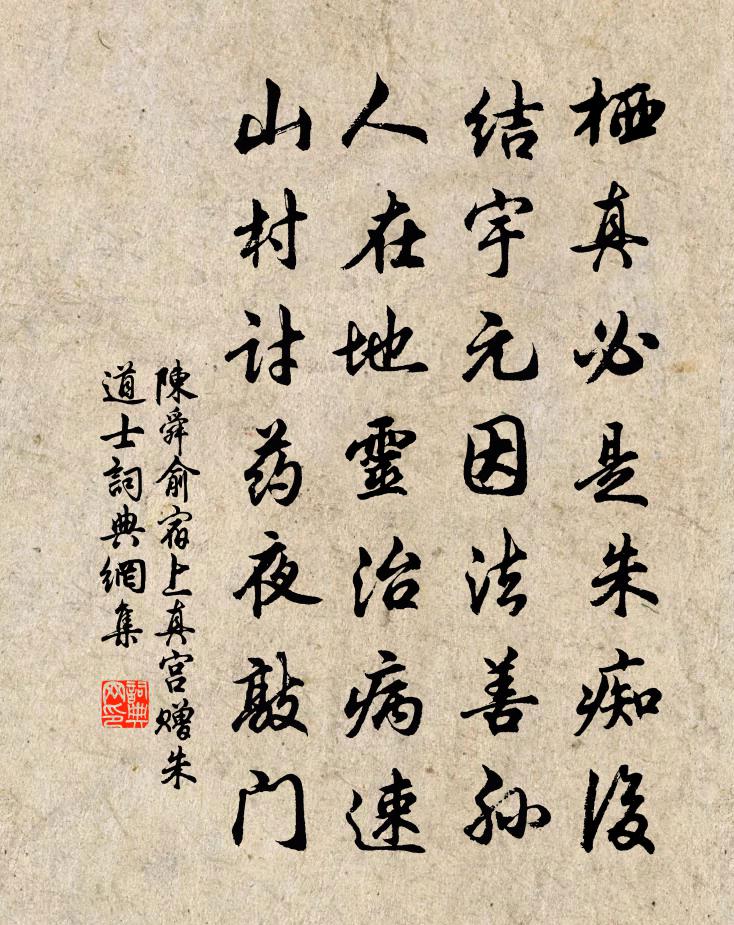 栖真必是朱痴後
结宇元因法善孙
人在地靈治病速
山村討药夜敲门
陳舜俞宿上真宫赠朱
道士詞典網集
詞典网印